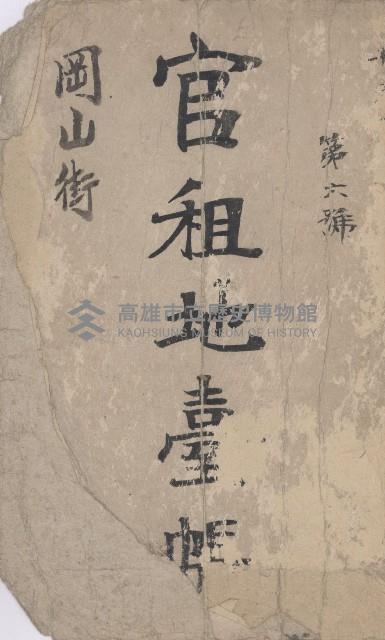 第六號
官租地臺帳
岡山街
高雄市立歷史博物館
KAOHSIUNG MUSEUM OF HISTORY